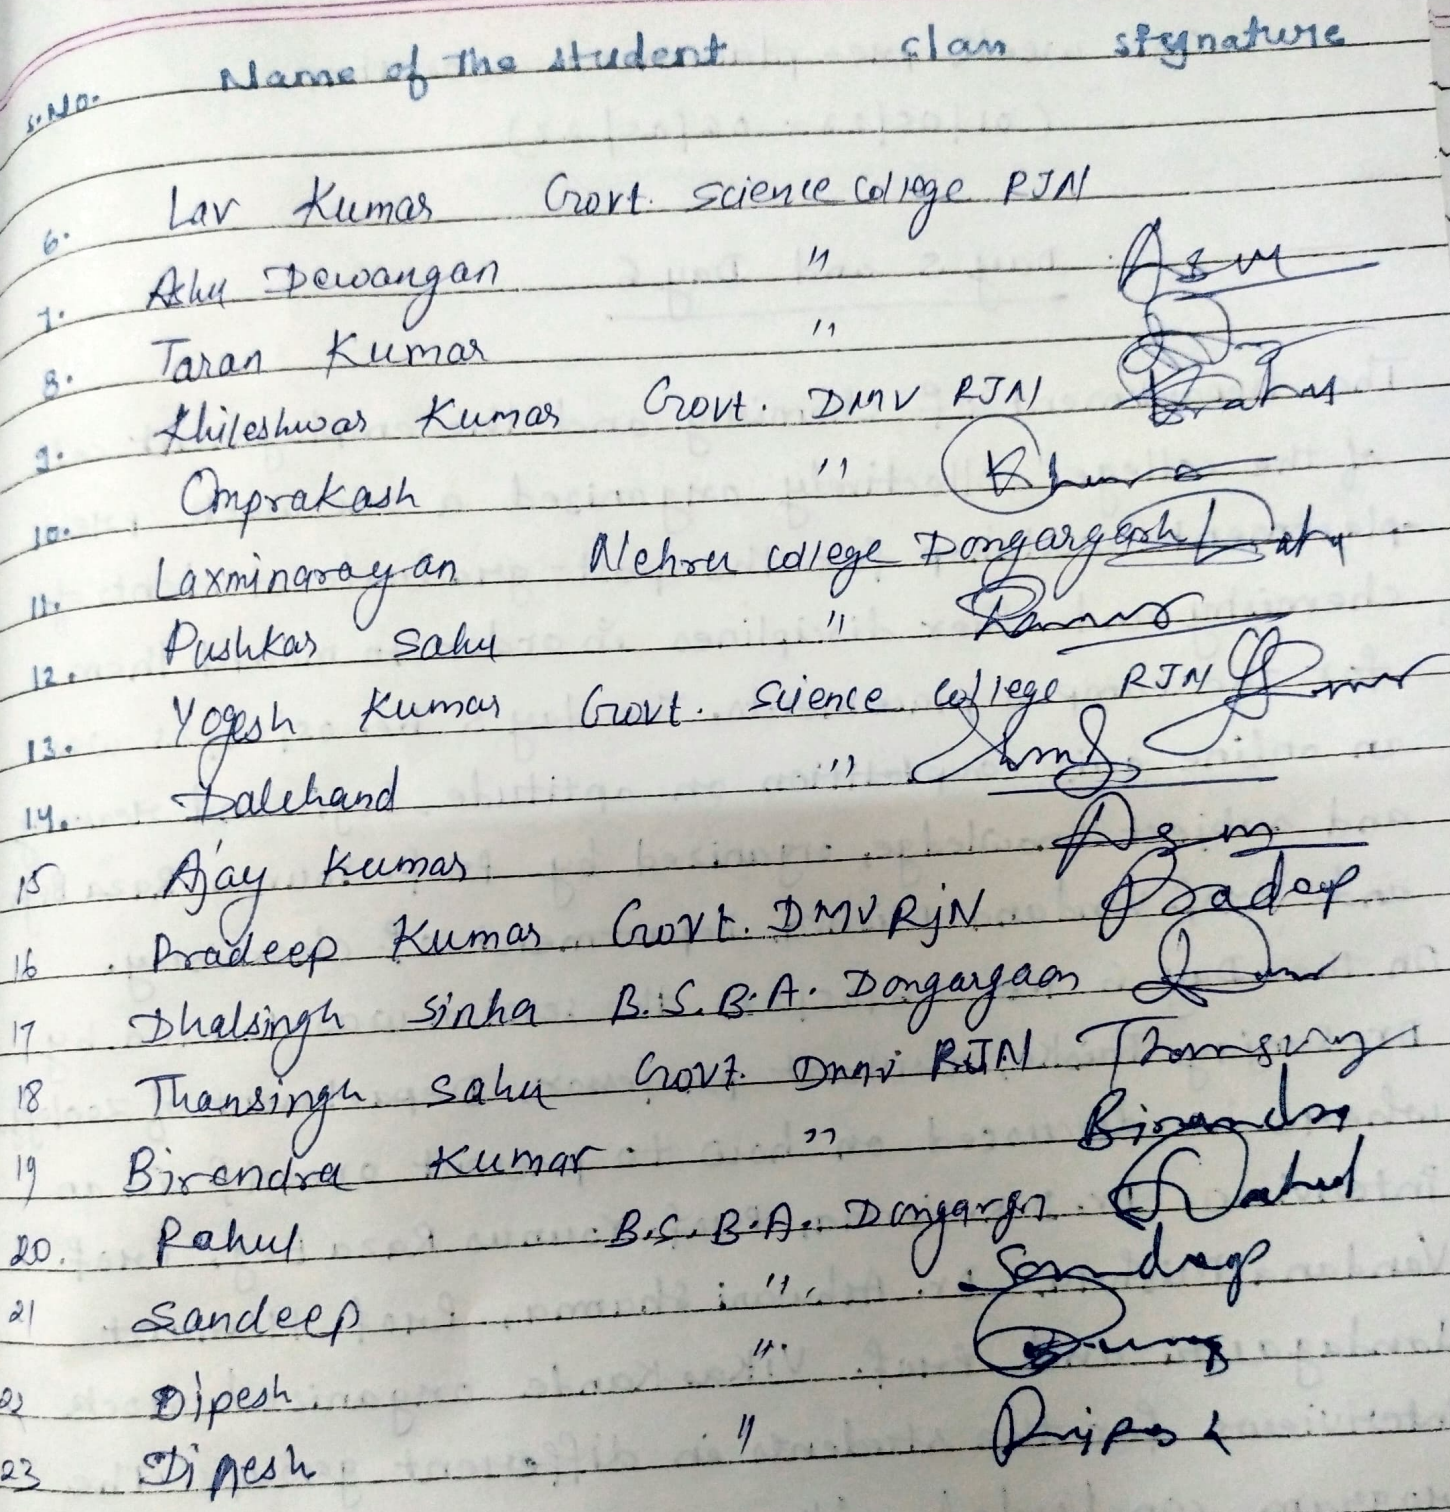 S.No. Name of The student class signature
6. Lav Kumar Govt. science college RJN
7. Ashu Dewangan "
8. Taran Kumar "
9. Khileshwar Kumar Govt. DMV RJN
10. Omprakash "
11. Laxminarayan Nehru college Dongargarh
12. Pushkar Sahu "
13. Yogesh Kumar Govt. Science college RJN
14. Dalchand "
15 Ajay Kumar
16 Pradeep Kumar Govt. DMV RjN Pradeep
17 Dhalsingh Sinha B.S.B.A. Dongargaon
18 Thansingh Sahu Govt. DMV RJN Thansingh
19 Birendra Kumar " Birendra
20. Rahul B.S.B.A. Dongargn Rahul
21 Sandeep " Sandeep
22 Dipesh "
23 Dipesh "